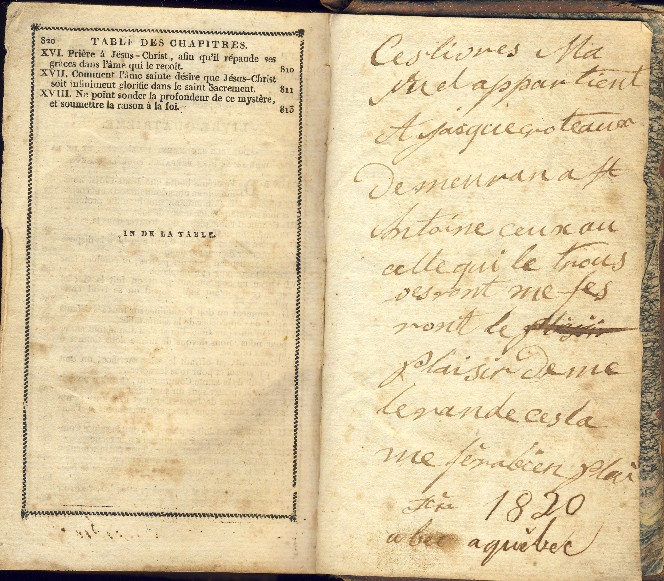 820 TABLE DES CHAPITRES.
XVI. Prière à Jésus-Christ, afin qu'il répande ses
grâces dans l'âme qui le reçoit. 810
XVII. Comment l'âme sainte désire que Jésus-Christ
soit infiniment glorifié dans le saint Sacrement. 811
XVIII. Ne point sonder la profondeur de ce mystère,
et soumettre la raison à la foi. 813
IN DE LA TABLE.
Ces livres Ma
nuel appartient
A jacque croteaux
Demeuran a st
Antoine ceux au
celle qui le trous
veront me fes
ront le plaisir
plaisir De me
le rande cesla
me ferabien plai
sir 1820
a bec aquébec